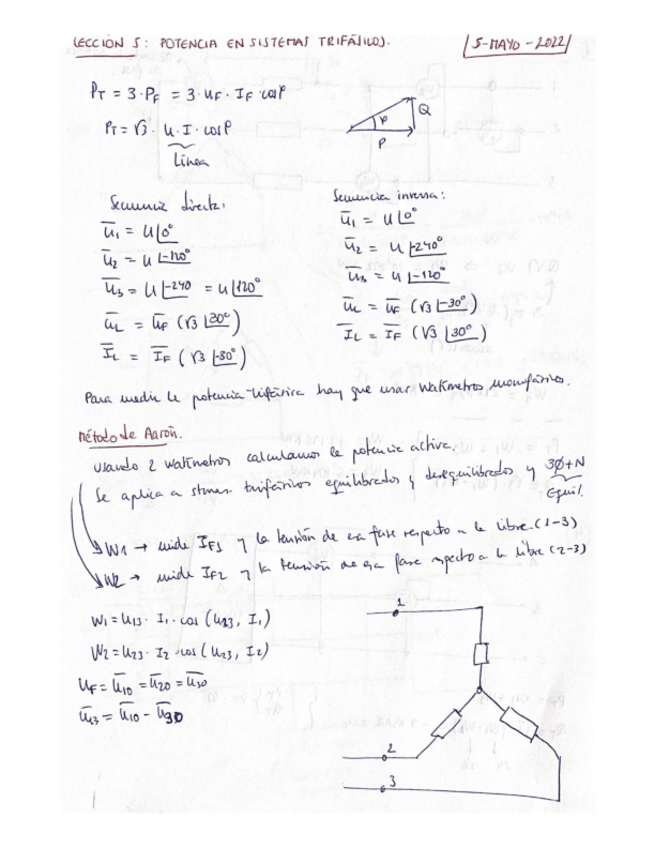 LECCIÓN 5: POTENCIA EN SISTEMAS TRIFÁSICOS.
5-MAYO-2022
P_T = 3·P_F = 3·U_F·I_F·cosφ
P_T = √3·U·I·cosφ
Línea
φ
Q
P
Secuencia directa:
Ū₁ = U∠0°
Ū₂ = U∠-120°
Ū₃ = U∠-240 = U∠120°
Ū_L = Ū_F (√3∠30°)
Ī_L = Ī_F (√3∠-30°)
Secuencia inversa:
Ū₁ = U∠0°
Ū₂ = U∠-240°
Ū₃ = U∠-120°
Ū_L = Ū_F (√3∠-30°)
Ī_L = Ī_F (√3∠30°)
Para medir la potencia trifásica hay que usar Watímetros monofásicos.
Método de Aarón.
Usando 2 watímetros calculamos la potencia activa.
Se aplica a trifásicos equilibrados y desequilibrados y 3Ø+N
Equil.
W1 → mide I_F1 y la tensión de esa fase respecto a la libre (1-3)
W2 → mide I_F2 y la tensión de esa fase respecto a la libre (2-3)
W₁ = U₁₃·I₁·cos(U₁₃, I₁)
W₂ = U₂₃·I₂·cos(U₂₃, I₂)
U_F = Ū₁₀ = Ū₂₀ = Ū₃₀
Ū₁₃ = Ū₁₀ - Ū₃₀
1
2
3